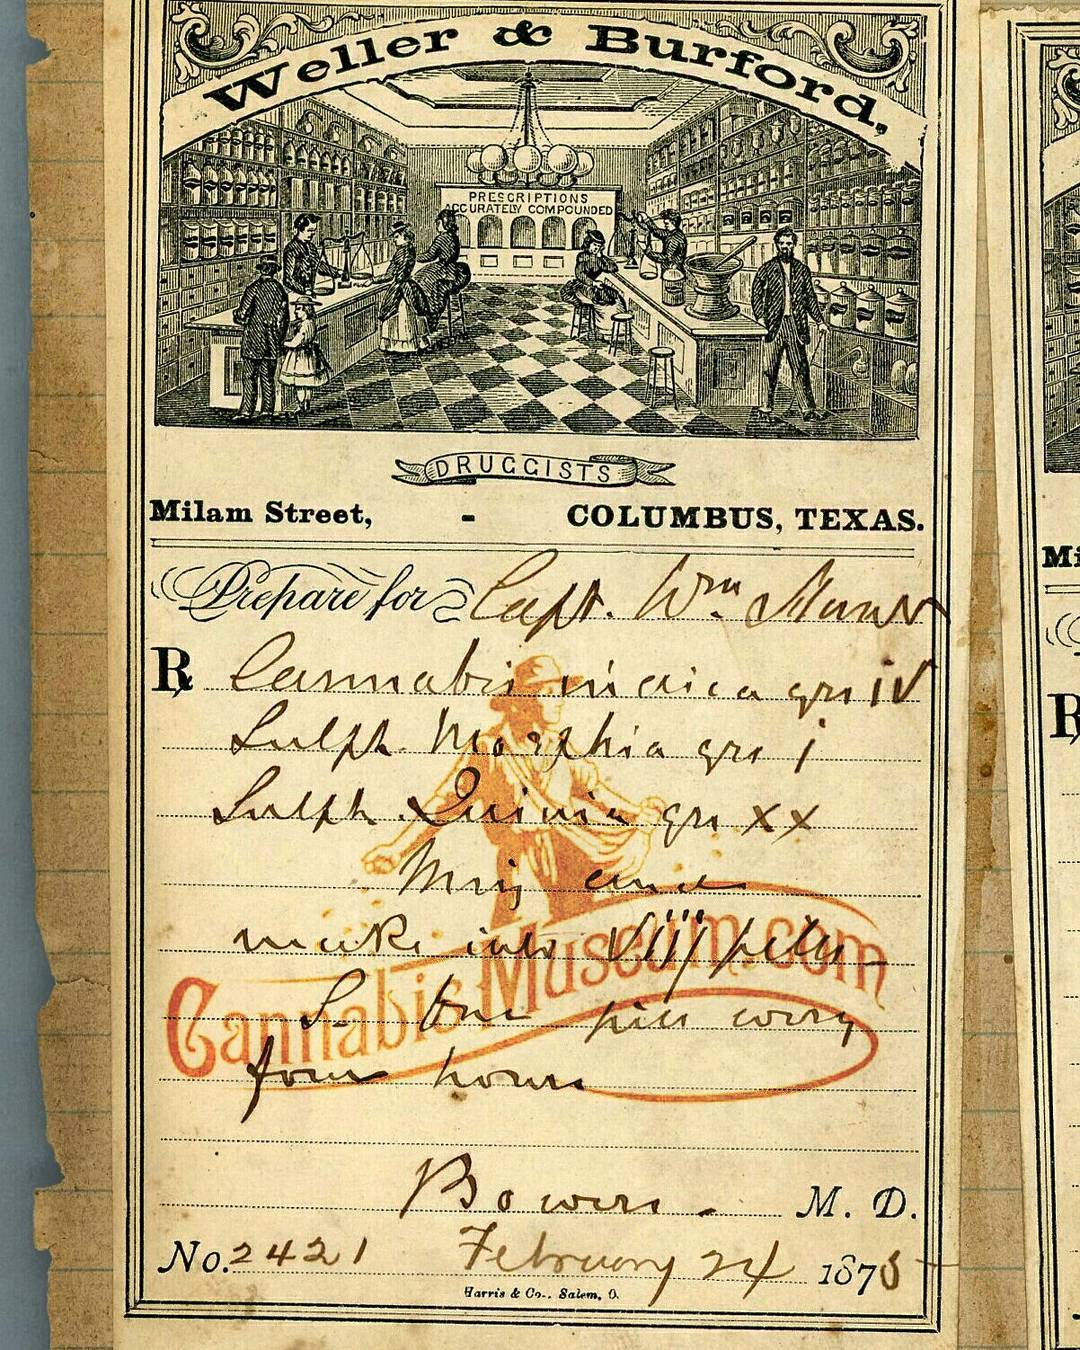 Weller & Burford,
PRESCRIPTIONS
ACCURATELY COMPOUNDED
DRUGGISTS
Milam Street, - COLUMBUS, TEXAS.
Prepare for Capt. Wm
R Cannabis indica grs iv
Sulph Morphia grs j
Sulph Quinia grs xx
Mix and
make into viij pills
S. One pill every
four hours
Bowers. M. D.
No. 2421 February 24 1875
Harris & Co., Salem, O.
CannabisMuseum.com
Mi
R